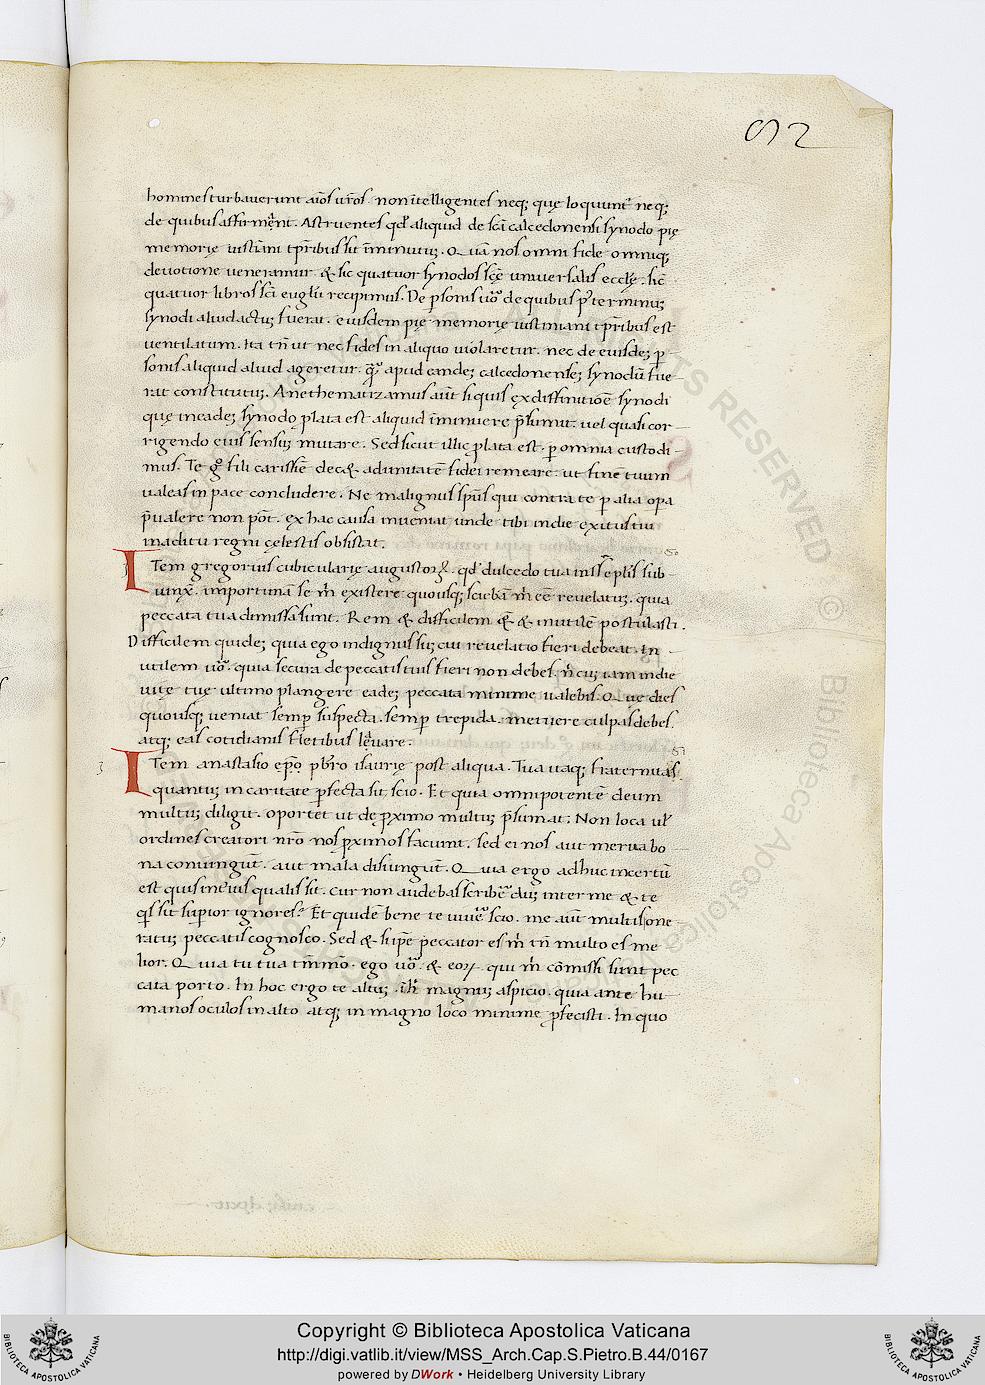 92
homines turbaverunt aīos vr̄os. non ītelligentes neq; quę loquunt᷑ neq;
de quibus affirmēnt. Astruentes qđ aliquid de scā calcedonensi synodo pię
memorię iustiniani tp̄ribus sit īminutū. Quā nos omni fide omniq;
devotione veneramur. & sic quatuor synodos scę universalis ecclę. sic
quatuor libros sci euglii recipimus. De psonis vo de quibus p' terminū
synodi aliud actū fuerat. eiusdem pię memorię iustiniani tp̄ribus est
ventilatum. Ita tn̄ ut nec fides in aliquo violaretur. nec de eisdē p
sonis aliquid aliud ageretur. quā apud eandē calcedonensē synodū fue-
rat constitutū. Anethematizamus aut si quis ex diffinitiōe synodi
quę in eadē synodo plata est aliquid īminuere psumit. vel quasi cor-
rigendo eius sensū mutare. Sed sicut illic plata est. p omnia custodi-
mus. Te g fili carissīe dec&. ad unitatē fidei remeare. ut finē tuum
valeas in pace concludere. Ne malignus sp̄us qui contra te p alia opa
p̄valere non pōt. ex hac causa inveniat unde tibi in die exitus tui
in aditu regni cęlestis obsistat.
Item gregorius cubicularię augustorȝ. qđ dulcedo tua in suis ep̄lis sub-
iunx&. importunā se m̄ existere quousq; scribā m̄ eē revelatū. quia
peccata tua dimissa sunt. Rem & difficilem &ē & inutilē postulasti.
Difficilem quidē; quia ego indignus sū; cui revelatio fieri debeat. In
utilem vo. quia secura de peccatis tuis fieri non debes. n̄ cū iam in die
vitę tuę ultimo plangere eadē peccata minime valebis. Quę dies
quousq; veniat semp suspecta. semp trepida. metuere culpas debes.
atq; eas cotidianis fletibus lavare.
Item anastasio epo pbro isaurię post aliqua. Tua itaq; fraternitas
quantū in caritate pfecta sit, scio. Et quia omnipotentē deum
multū diligit. oportet ut de pximo multū psumat. Non loca vl
ordines creatori nr̄o nos pximos faciunt. sed ei nos aut merita bo
na coniungūt. aut mala disiungūt. Quia ergo adhuc incertū
est quis in eius qualis sit. cur non audebas scribē; dū inter me & te
qs sit supior ignores. Et quidē bene te vivē scio. me aut multis one
ratū peccatis cognosco. Sed & si ipe peccator es m̄ tn̄ multo es me
lior. Quia tu tua tm̄mo. ego vo. & eorȝ qui m̄ cōmissi sunt pec
cata porto. In hoc ergo te altū. in hoc magnū aspicio. quia ante hu-
manos oculos in alto atq; in magno loco minime pfecisti. In quo
Copyright © Biblioteca Apostolica Vaticana
http://digi.vatlib.it/view/MSS_Arch.Cap.S.Pietro.B.44/0167
powered by DWork • Heidelberg University Library